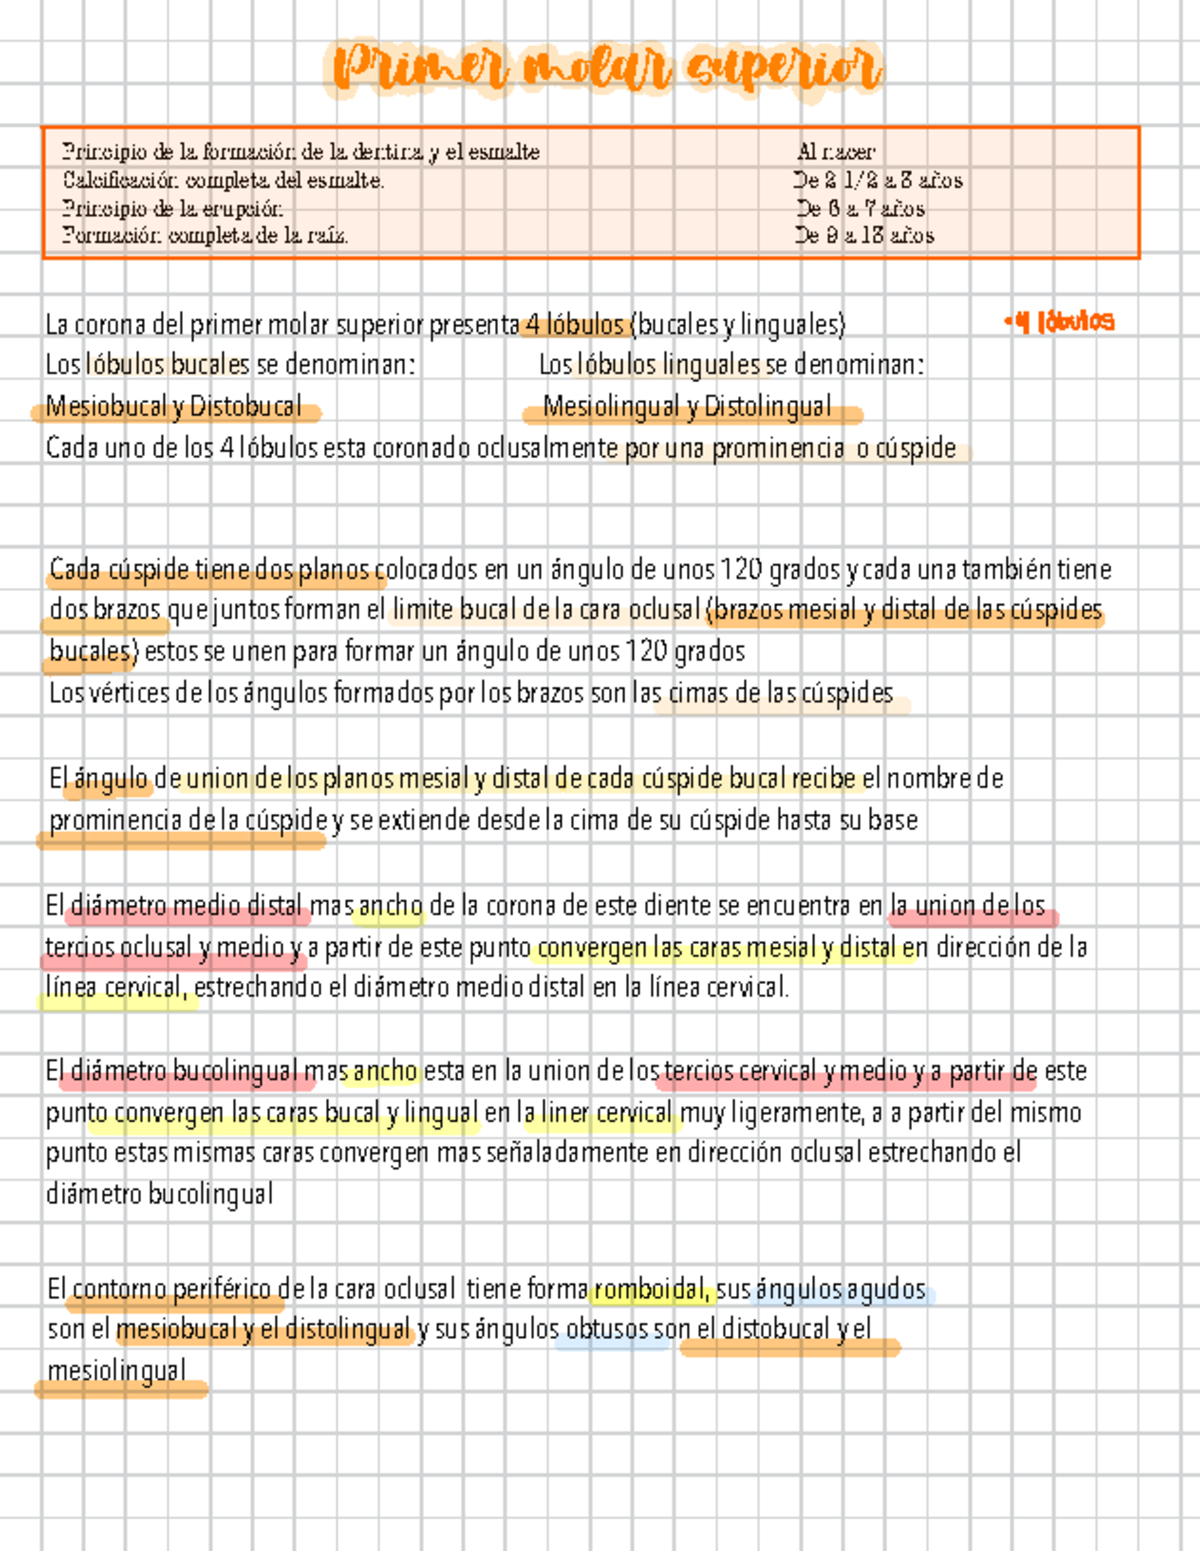 Primer molar superior
Principio de la formación de la dentina y el esmalte Al nacer
Calcificación completa del esmalte. De 2 1/2 a 3 años
Principio de la erupción De 6 a 7 años
Formación completa de la raíz. De 9 a 13 años
La corona del primer molar superior presenta 4 lóbulos (bucales y linguales) •4 lóbulos
Los lóbulos bucales se denominan: Los lóbulos linguales se denominan:
Mesiobucal y Distobucal Mesiolingual y Distolingual
Cada uno de los 4 lóbulos esta coronado oclusalmente por una prominencia o cúspide
Cada cúspide tiene dos planos colocados en un ángulo de unos 120 grados y cada una también tiene
dos brazos que juntos forman el limite bucal de la cara oclusal (brazos mesial y distal de las cúspides
bucales) estos se unen para formar un ángulo de unos 120 grados
Los vértices de los ángulos formados por los brazos son las cimas de las cúspides
El ángulo de union de los planos mesial y distal de cada cúspide bucal recibe el nombre de
prominencia de la cúspide y se extiende desde la cima de su cúspide hasta su base
El diámetro medio distal mas ancho de la corona de este diente se encuentra en la union de los
tercios oclusal y medio y a partir de este punto convergen las caras mesial y distal en dirección de la
línea cervical, estrechando el diámetro medio distal en la línea cervical.
El diámetro bucolingual mas ancho esta en la union de los tercios cervical y medio y a partir de este
punto convergen las caras bucal y lingual en la liner cervical muy ligeramente, a a partir del mismo
punto estas mismas caras convergen mas señaladamente en dirección oclusal estrechando el
diámetro bucolingual
El contorno periférico de la cara oclusal tiene forma romboidal, sus ángulos agudos
son el mesiobucal y el distolingual y sus ángulos obtusos son el distobucal y el
mesiolingual